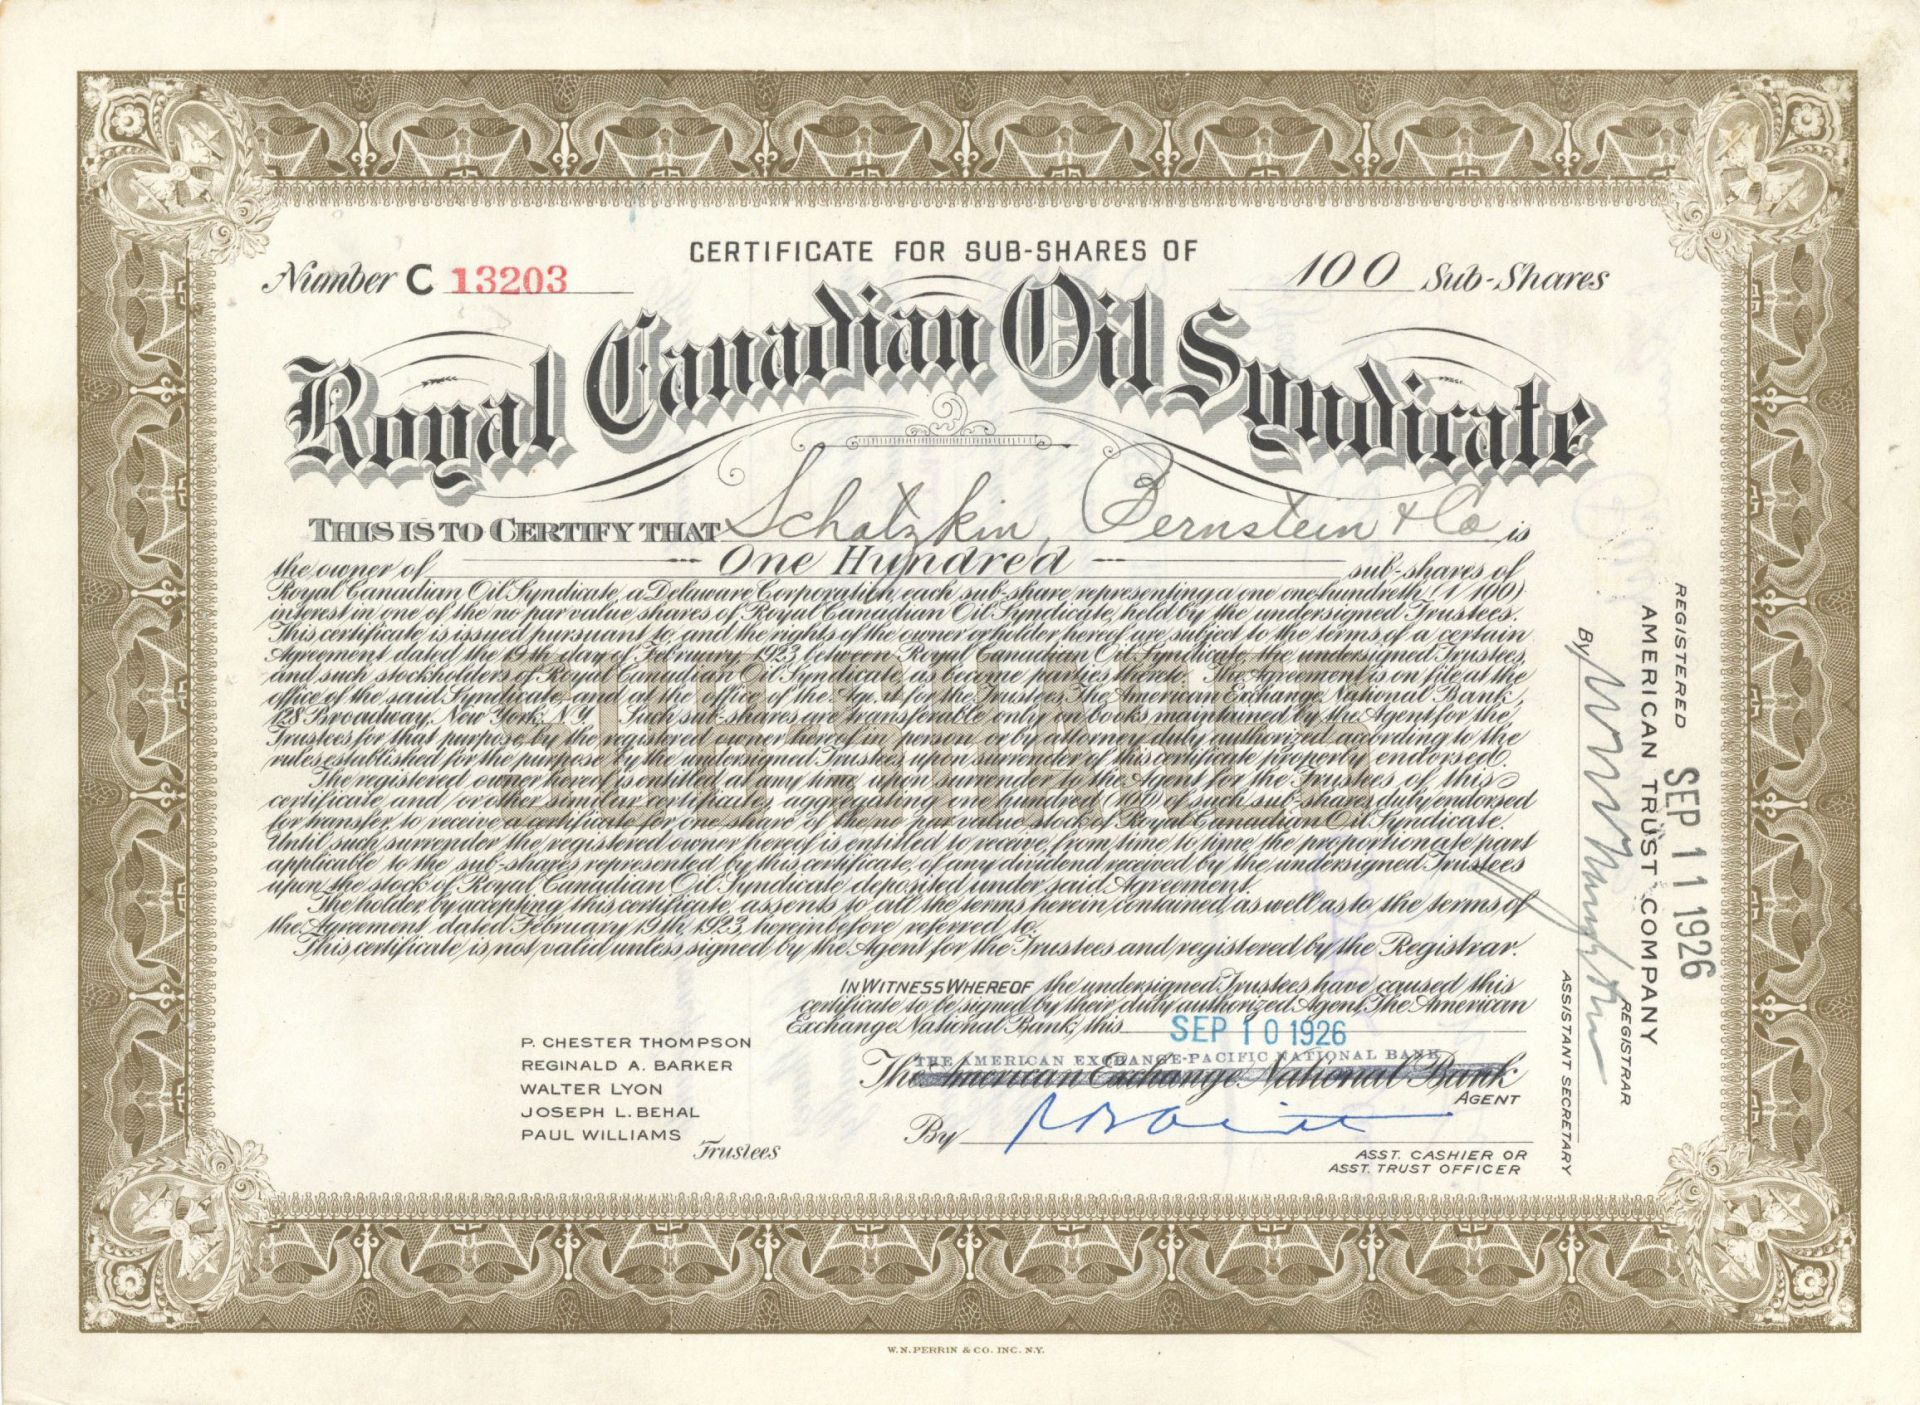 CERTIFICATE FOR SUB-SHARES OF
Number C 13203
100 Sub-Shares
Royal Canadian Oil Syndicate
THIS IS TO CERTIFY THAT Schatzkin, Bernstein & Co is
the owner of --- One Hundred --- sub-shares of
Royal Canadian Oil Syndicate, a Delaware Corporation, each sub-share representing a one one-hundreth (1/100)
interest in one of the no par value shares of Royal Canadian Oil Syndicate, held by the undersigned Trustees.
This certificate is issued pursuant to, and the rights of the owner or holder hereof are subject to the terms of a certain
Agreement dated the 19th day of February, 1923, between Royal Canadian Oil Syndicate, the undersigned Trustees,
and such stockholders of Royal Canadian Oil Syndicate, as become parties thereto. The Agreement is on file at the
office of the said Syndicate, and at the office of the Agent for the Trustees, The American Exchange National Bank,
128 Broadway, New York, N.Y. Such sub-shares are transferable only on books maintained by the Agent for the
Trustees for that purpose, by the registered owner hereof in person or by attorney duly authorized according to the
rules established for the purpose by the undersigned Trustees upon surrender of this certificate properly endorsed.
The registered owner hereof is entitled at any time, upon surrender to the Agent for the Trustees of this
certificate, and/or other similar certificates, aggregating one hundred (100) of such sub-shares, duly endorsed
for transfer, to receive a certificate for one share of the no par value stock of Royal Canadian Oil Syndicate.
Until such surrender the registered owner hereof is entitled to receive, from time to time, the proportionate part
applicable to the sub-shares represented by this certificate, of any dividend received by the undersigned Trustees
upon the stock of Royal Canadian Oil Syndicate deposited under said Agreement.
The holder, by accepting this certificate, assents to all the terms herein contained, as well as to the terms of
the Agreement dated February 19th, 1923, hereinbefore referred to.
This certificate is not valid unless signed by the Agent for the Trustees and registered by the Registrar.
SUB-SHARES
IN WITNESS WHEREOF the undersigned Trustees have caused this
certificate to be signed by their duly authorized Agent, The American
Exchange National Bank, this SEP 10 1926
THE AMERICAN EXCHANGE-PACIFIC NATIONAL BANK
The American Exchange National Bank
AGENT
By
ASST. CASHIER OR
ASST. TRUST OFFICER
P. CHESTER THOMPSON
REGINALD A. BARKER
WALTER LYON
JOSEPH L. BEHAL
PAUL WILLIAMS
Trustees
REGISTERED SEP 11 1926
AMERICAN TRUST COMPANY
REGISTRAR
By
ASSISTANT SECRETARY
W.N. PERRIN & CO. INC. N.Y.